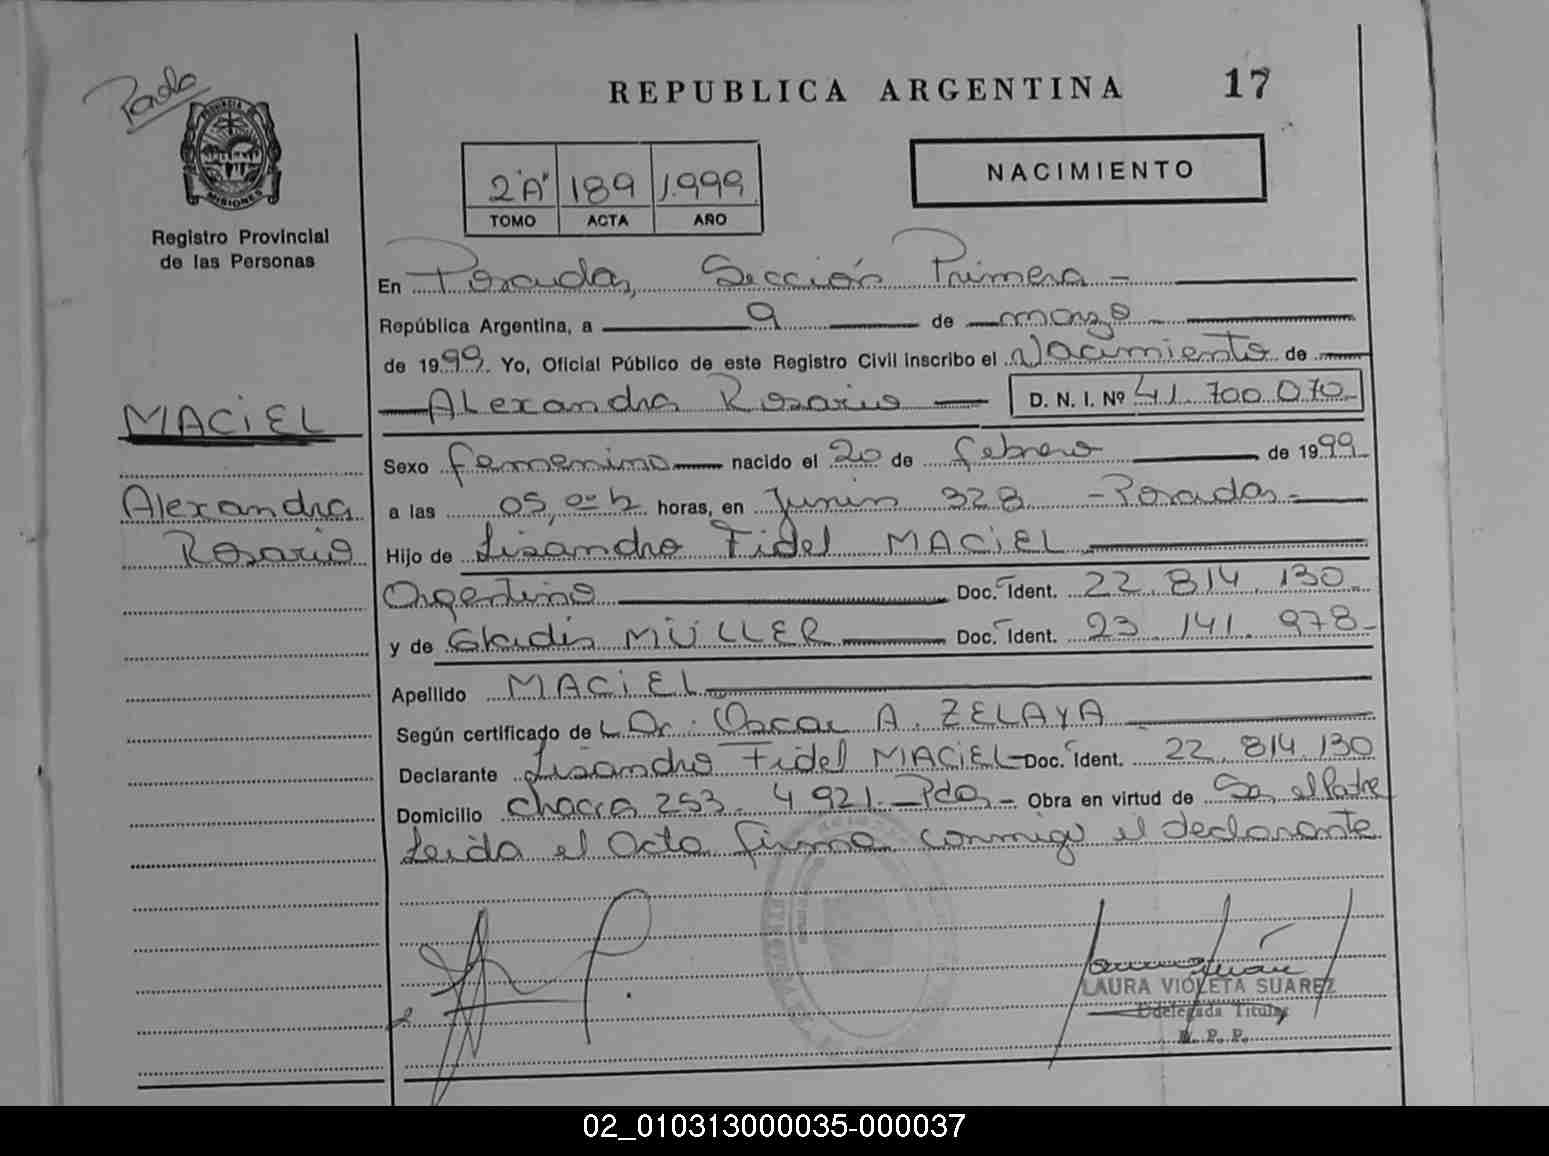 REPUBLICA ARGENTINA 17
NACIMIENTO
2"A" 189 1.999
TOMO ACTA AÑO
PROVINCIA
MISIONES
Registro Provincial
de las Personas
En Posadas, Sección Primera -
República Argentina, a 9 de marzo
de 1999. Yo, Oficial Público de este Registro Civil inscribo el Nacimiento de
Alexandra Rosario D. N. I. Nº 41.700.070
MACIEL
Alexandra
Rosario
Sexo femenino nacido el 20 de febrero de 1999
a las 05, horas, en Junin 328 - Posadas -
Hijo de Lisandro Fidel MACIEL
Argentino Doc. Ident. 22.814.130
y de Gladis MÜLLER Doc. Ident. 23.141.978-
Apellido MACIEL
Según certificado de L Dr. Oscar A. ZELAYA
Declarante Lisandro Fidel MACIEL Doc. Ident. 22.814.130
Domicilio chacra 253. 4921 - Pdas - Obra en virtud de Ser el Padre
Leida el Acta firma conmigo el declarante
LAURA VIOLETA SUAREZ
Titular
R. P. P.
02_010313000035-000037